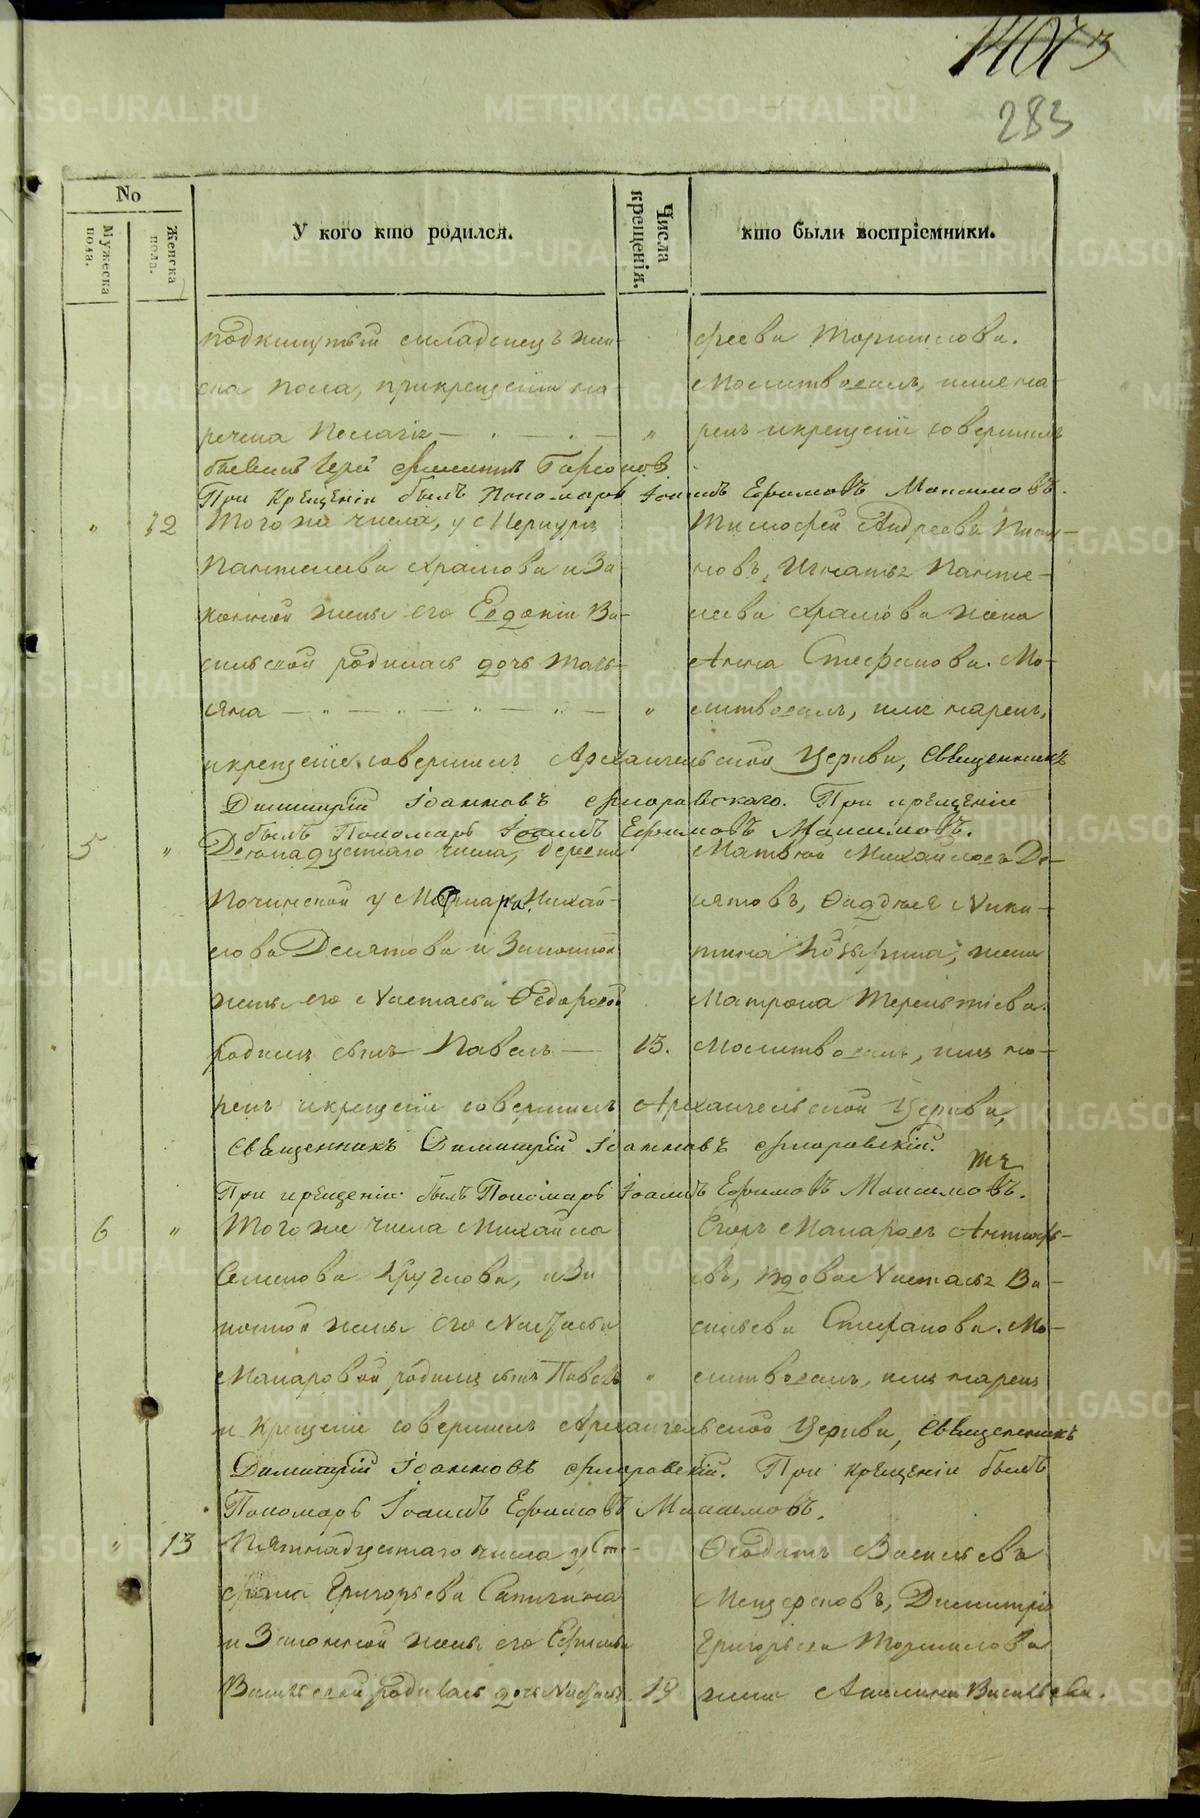 283
No
Мужеска пола.
Женска пола.
У кого кто родился.
Числа крещенія.
кто были воспріемники.
подкинутый младенецъ жен-
ска пола, прикрещеніи на-
речена Пелагія — „ — „ —
„
Торшилова.
Молитвовалъ, имя на-
рекъ икрещеніе совершилъ
бывшій
При крещеніи былъ Пономарь Іоаннъ Ефимовъ Максимовъ.
„ 12 Того же числа, у Меркурія
Пантелеева Храмова и За
конной жены его Евдокіи Ва-
сильевой родилась дочь Тать-
яна — „ — „ — „ — „ —
„
Тимофей Андреевъ
Игнатья Панте-
леева Храмова жена
Анна Стефанова. Мо-
литвовалъ, имя нарекъ,
икрещеніе совершилъ Архангельской Церкви, Священникъ
Димитрій Іоанновъ Флоровскаго. При крещеніи
былъ Пономарь Іоаннъ Ефимовъ Максимовъ.
5 „ Двенадцатаго числа, деревни
Починской у Макара Михай-
лова Десятова и Законной
жены его Настасьи Ѳедоровой
родился сынъ Павелъ —
13.
Матвей Михайловъ Де-
сятовъ, Ѳаддея Ники-
тина жена
Матрона Терентіева.
Молитвовалъ, имя на-
рекъ икрещеніе совершилъ Архангельской Церкви,
Священникъ Димитрій Іоанновъ Флоровскій.
При крещеніи былъ Пономарь Іоаннъ Ефимовъ Максимовъ.
6 „ Того же числа Михайла
Семенова Круглова, и За
конной жены его Настасьи
Макаровой родился сынъ Павелъ
„
Егоръ Макаровъ
вдова Настасья Ва-
сильева Стефанова. Мо-
литвовалъ, имя нарекъ
и Крещеніе совершилъ Архангельской Церкви, Священникъ
Димитрій Іоанновъ Флоровскій. При крещеніи былъ
Пономарь Іоаннъ Ефимовъ Максимовъ.
„ 13 Пятнадцатаго числа у Сте-
фана Григорьева
и Законной жены его
Васильевой родилась дочь
Ѳеодотъ Васильевъ
Мещеряковъ, Димитрія
Григорьева Торшилова
жена Акилина Васильева.